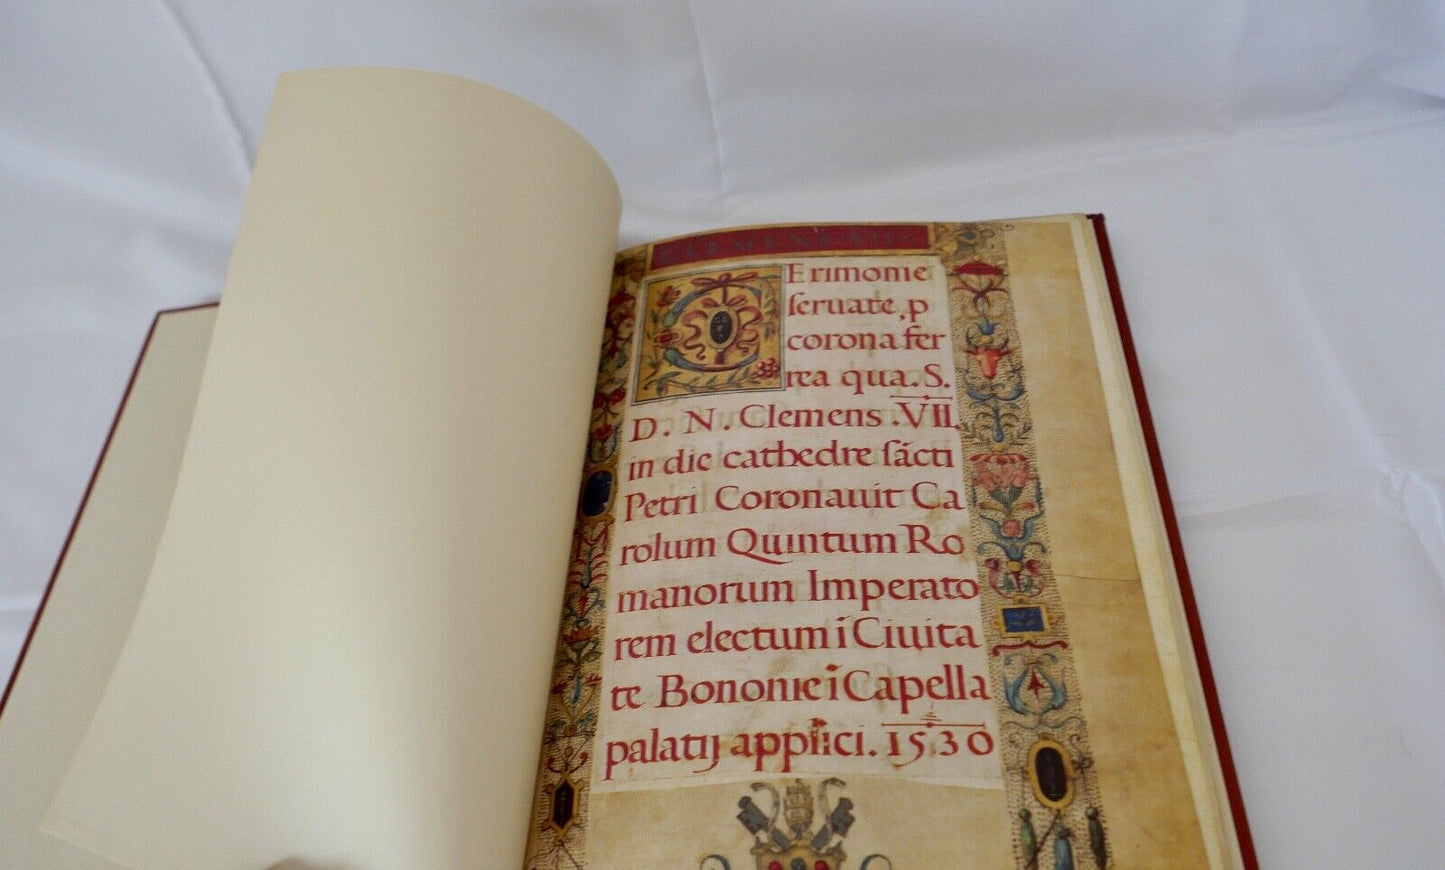 CLEMENS VII
CErimonie
seruate, p
corona fer
rea qua. S.
D. N. Clemens .VII.
in die cathedre sācti
Petri Coronauit Ca
rolum Quintum Ro
manorum Imperato
rem electum ī Ciuita
te Bononie ī Capella
palatij applici. 1530